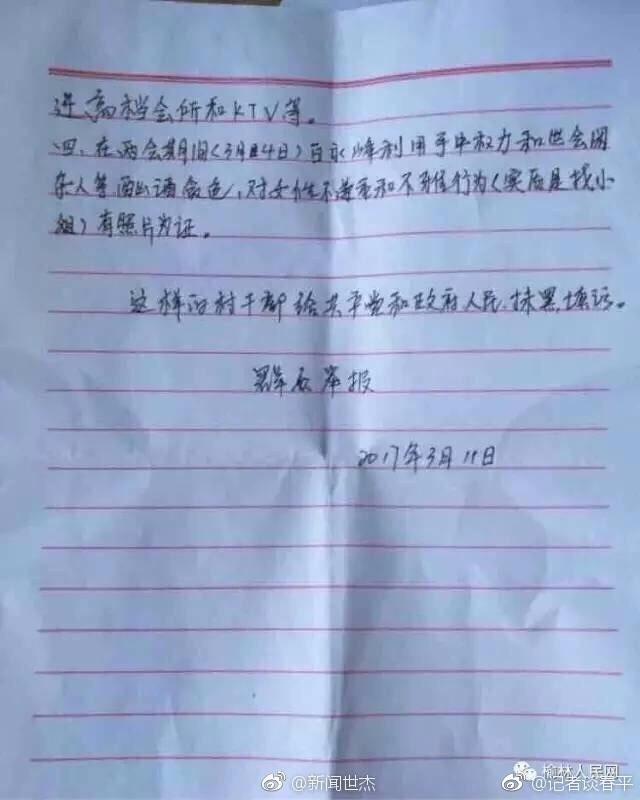 进高档会所和KTV等。
四、在两会期间(3月4日)白永峰利用手中权力和社会闲
杂人等酗酒食色,对女性不尊重和不雅行为(实后是找小
姐)有照片为证。
这样的村干部给共产党和政府人民抹黑填污。
群众举报
2017年3月11日
榆林人民网
@新闻世杰
@记者谈春平